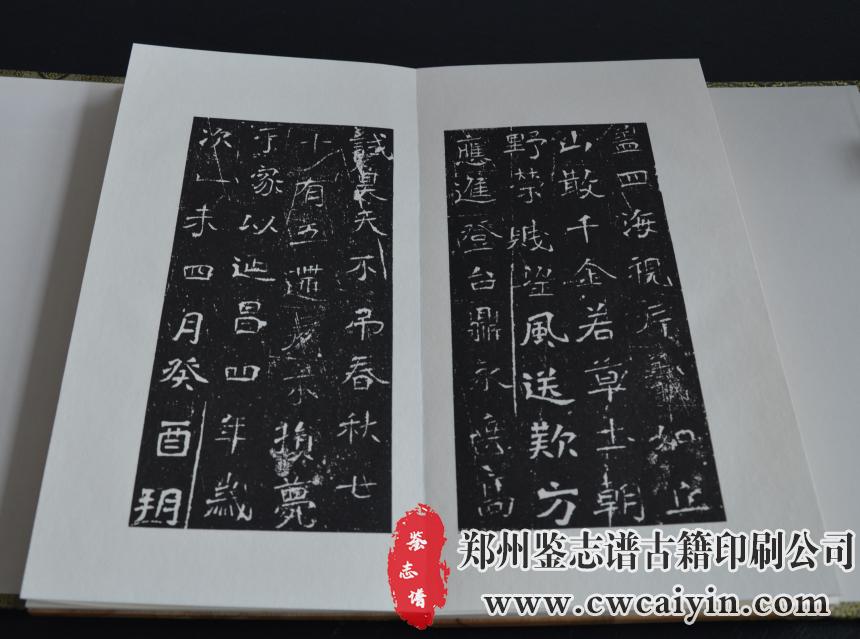 盈四海視片義如丘
山散千金若草土朝
野榮賤望風送歎方
應進登台鼎永
誠昊天不弔春秋七
十有五遘疾
於家以延昌四年歲
次未四月癸酉朔
鉴志谱
郑州鉴志谱古籍印刷公司
www.cwcaiyin.com